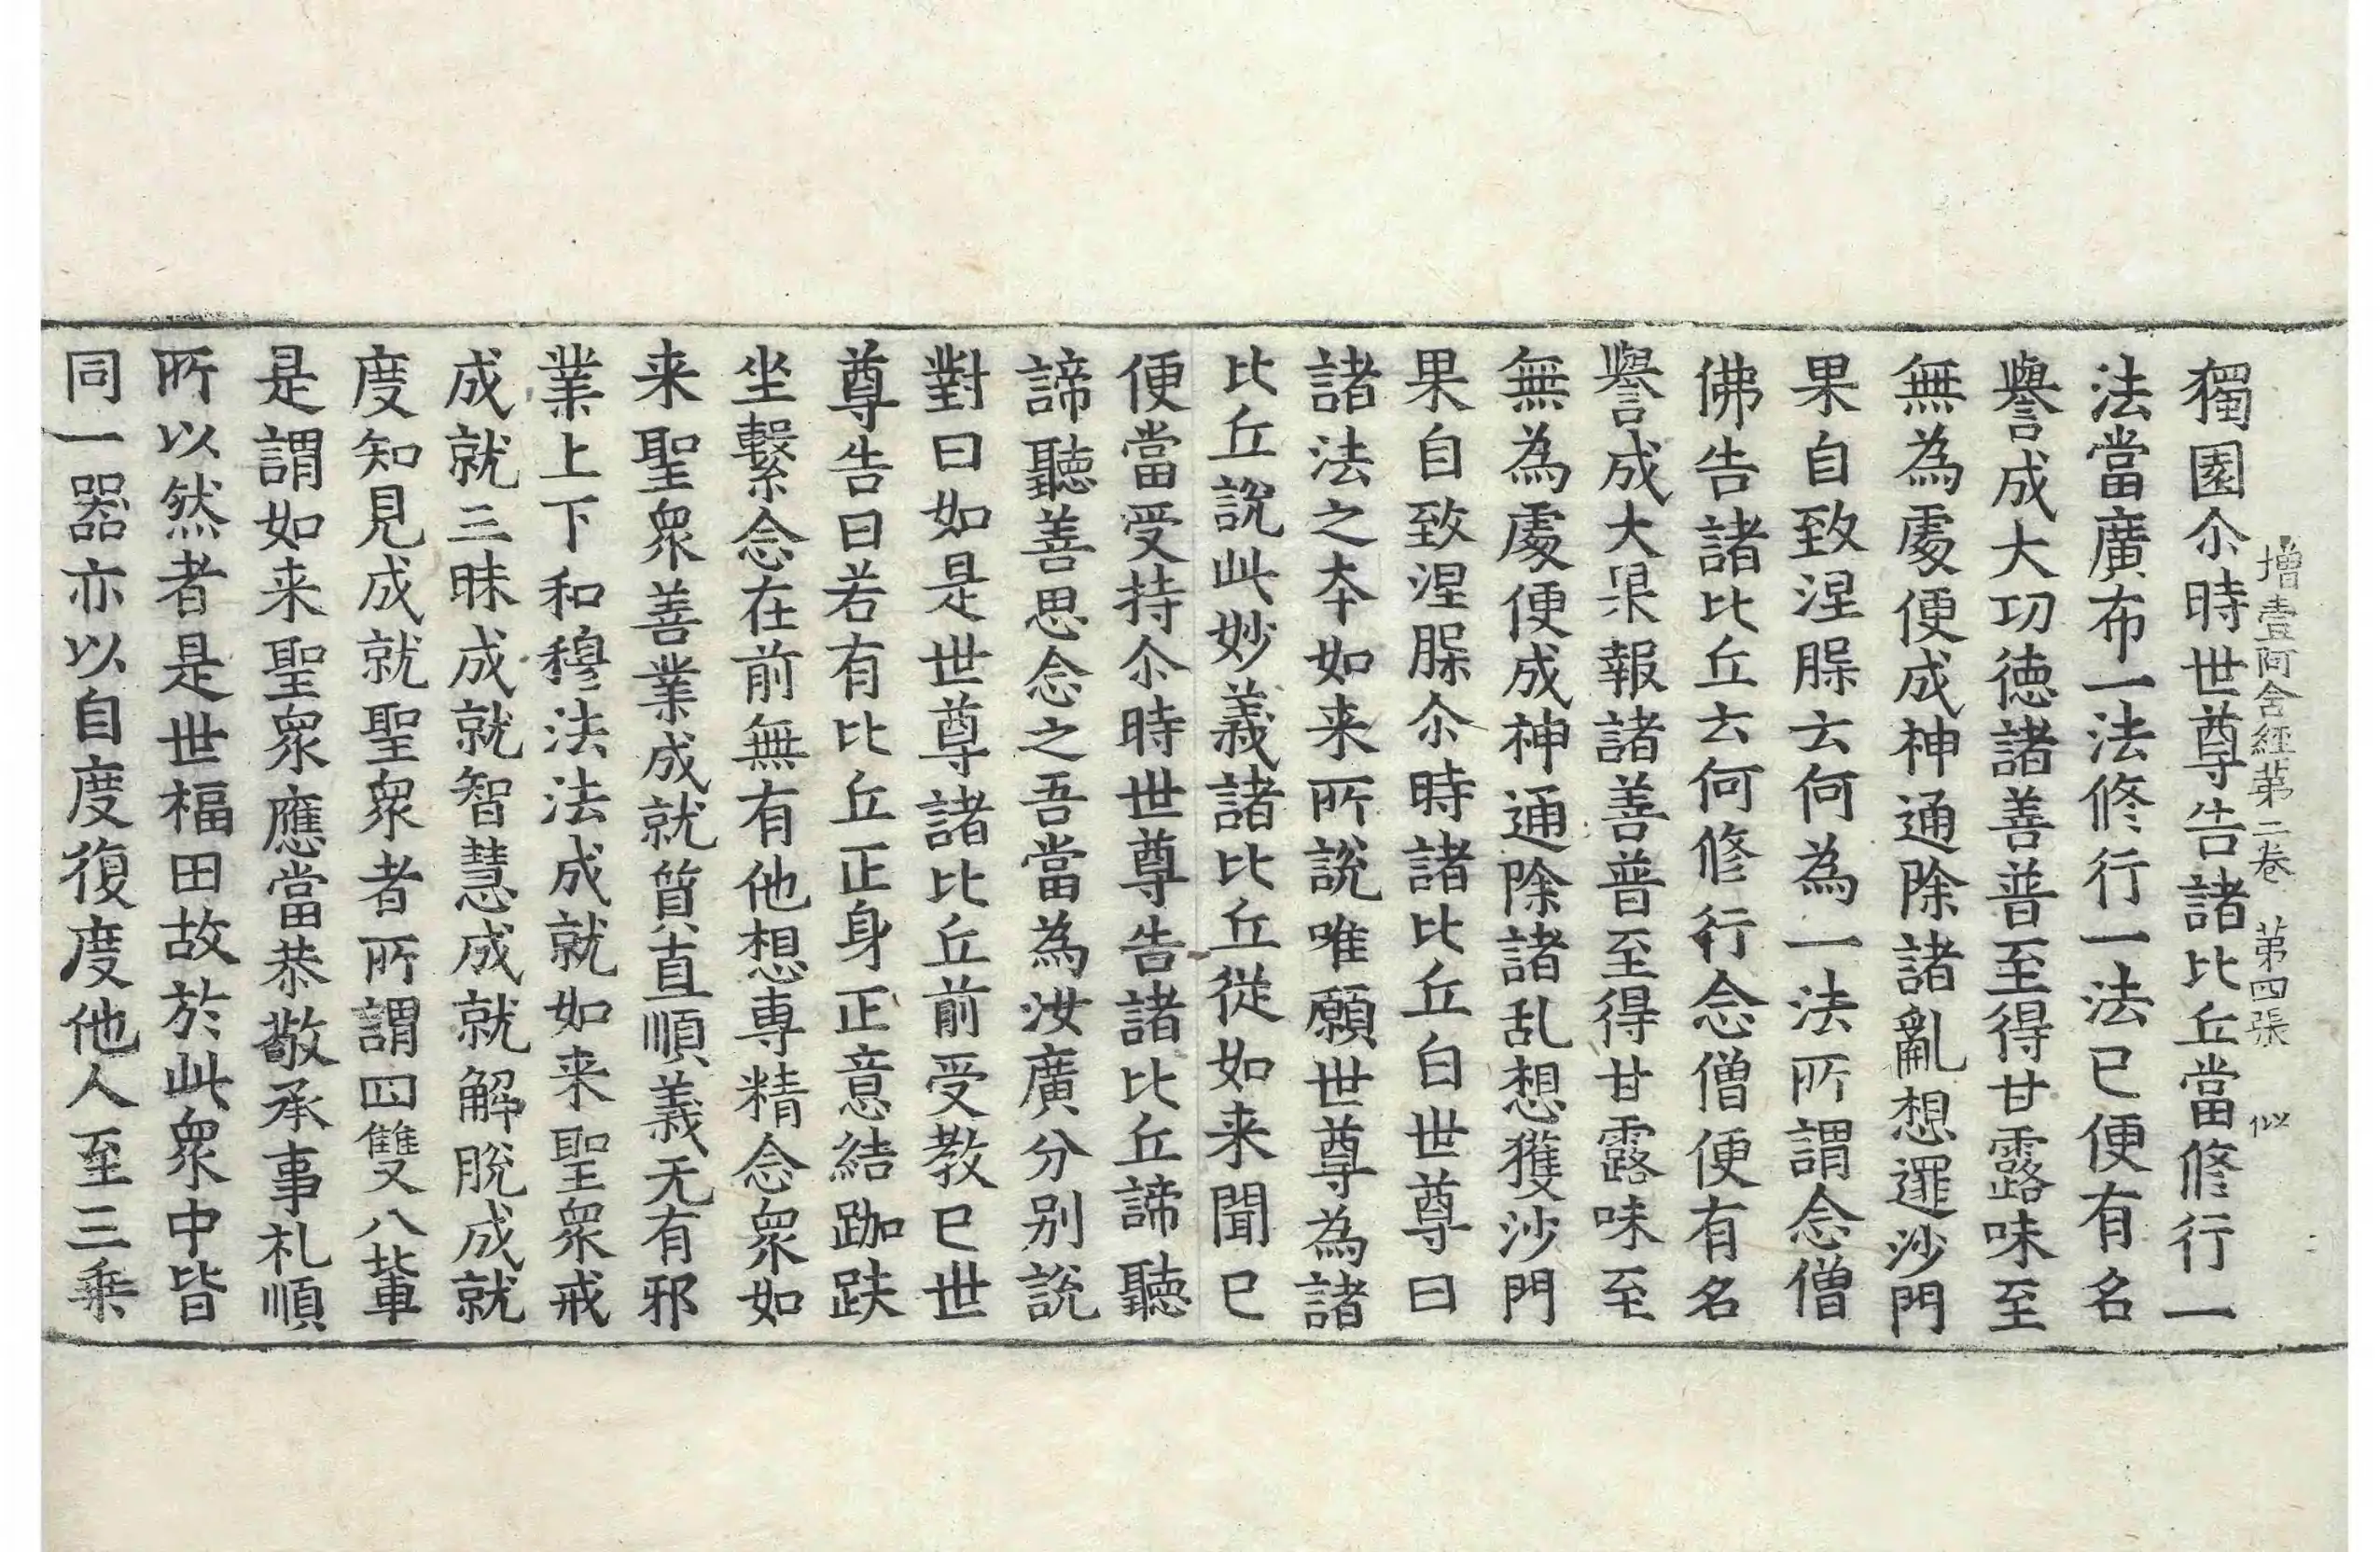 增壹阿含經第二卷 第四張 似
獨園尒時世尊告諸比丘當修行一
法當廣布一法修行一法已便有名
譽成大功德諸善普至得甘露味至
無為處便成神通除諸亂想逮沙門
果自致涅槃云何為一法所謂念僧
佛告諸比丘云何修行念僧便有名
譽成大果報諸善普至得甘露味至
無為處便成神通除諸乱想獲沙門
果自致涅槃尒時諸比丘白世尊曰
諸法之本如来所說唯願世尊為諸
比丘說此妙義諸比丘從如来聞已
便當受持尒時世尊告諸比丘諦聽
諦聽善思念之吾當為汝廣分別說
對曰如是世尊諸比丘前受教已世
尊告曰若有比丘正身正意結跏趺
坐繫念在前無有他想專精念衆如
来聖衆善業成就質直順義无有邪
業上下和穆法法成就如来聖衆戒
成就三昧成就智慧成就解脫成就
度知見成就聖衆者所謂四雙八輩
是謂如来聖衆應當恭敬承事礼順
所以然者是世福田故於此衆中皆
同一器亦以自度復度他人至三乗